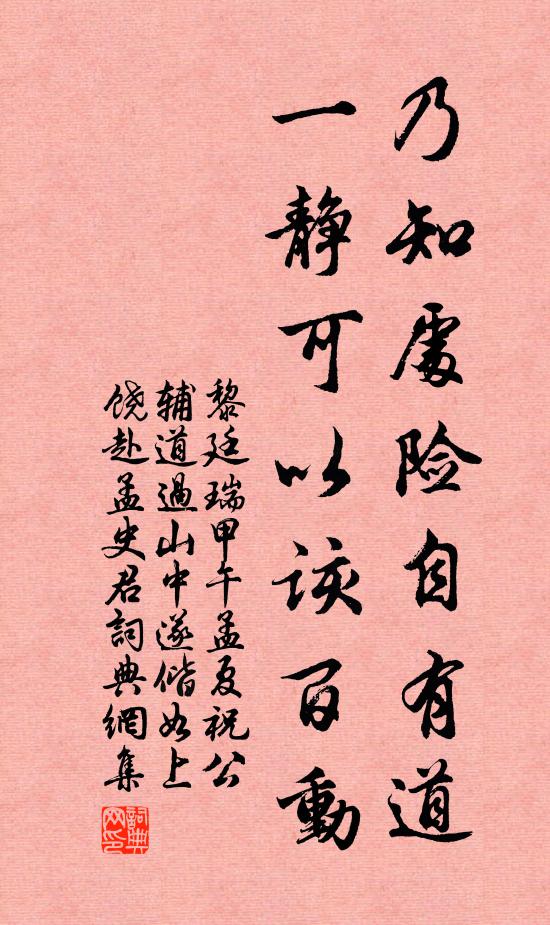 乃知處险自有道
一静可以该百動
黎廷瑞甲午孟夏祝公
辅道過山中遂偕如上
饶赴孟史君詞典網集
詞典网印